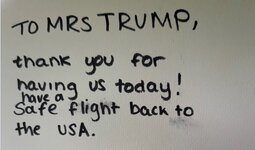 TO MRS TRUMP,
thank you for
having us today!
have a
safe flight back to
the USA.